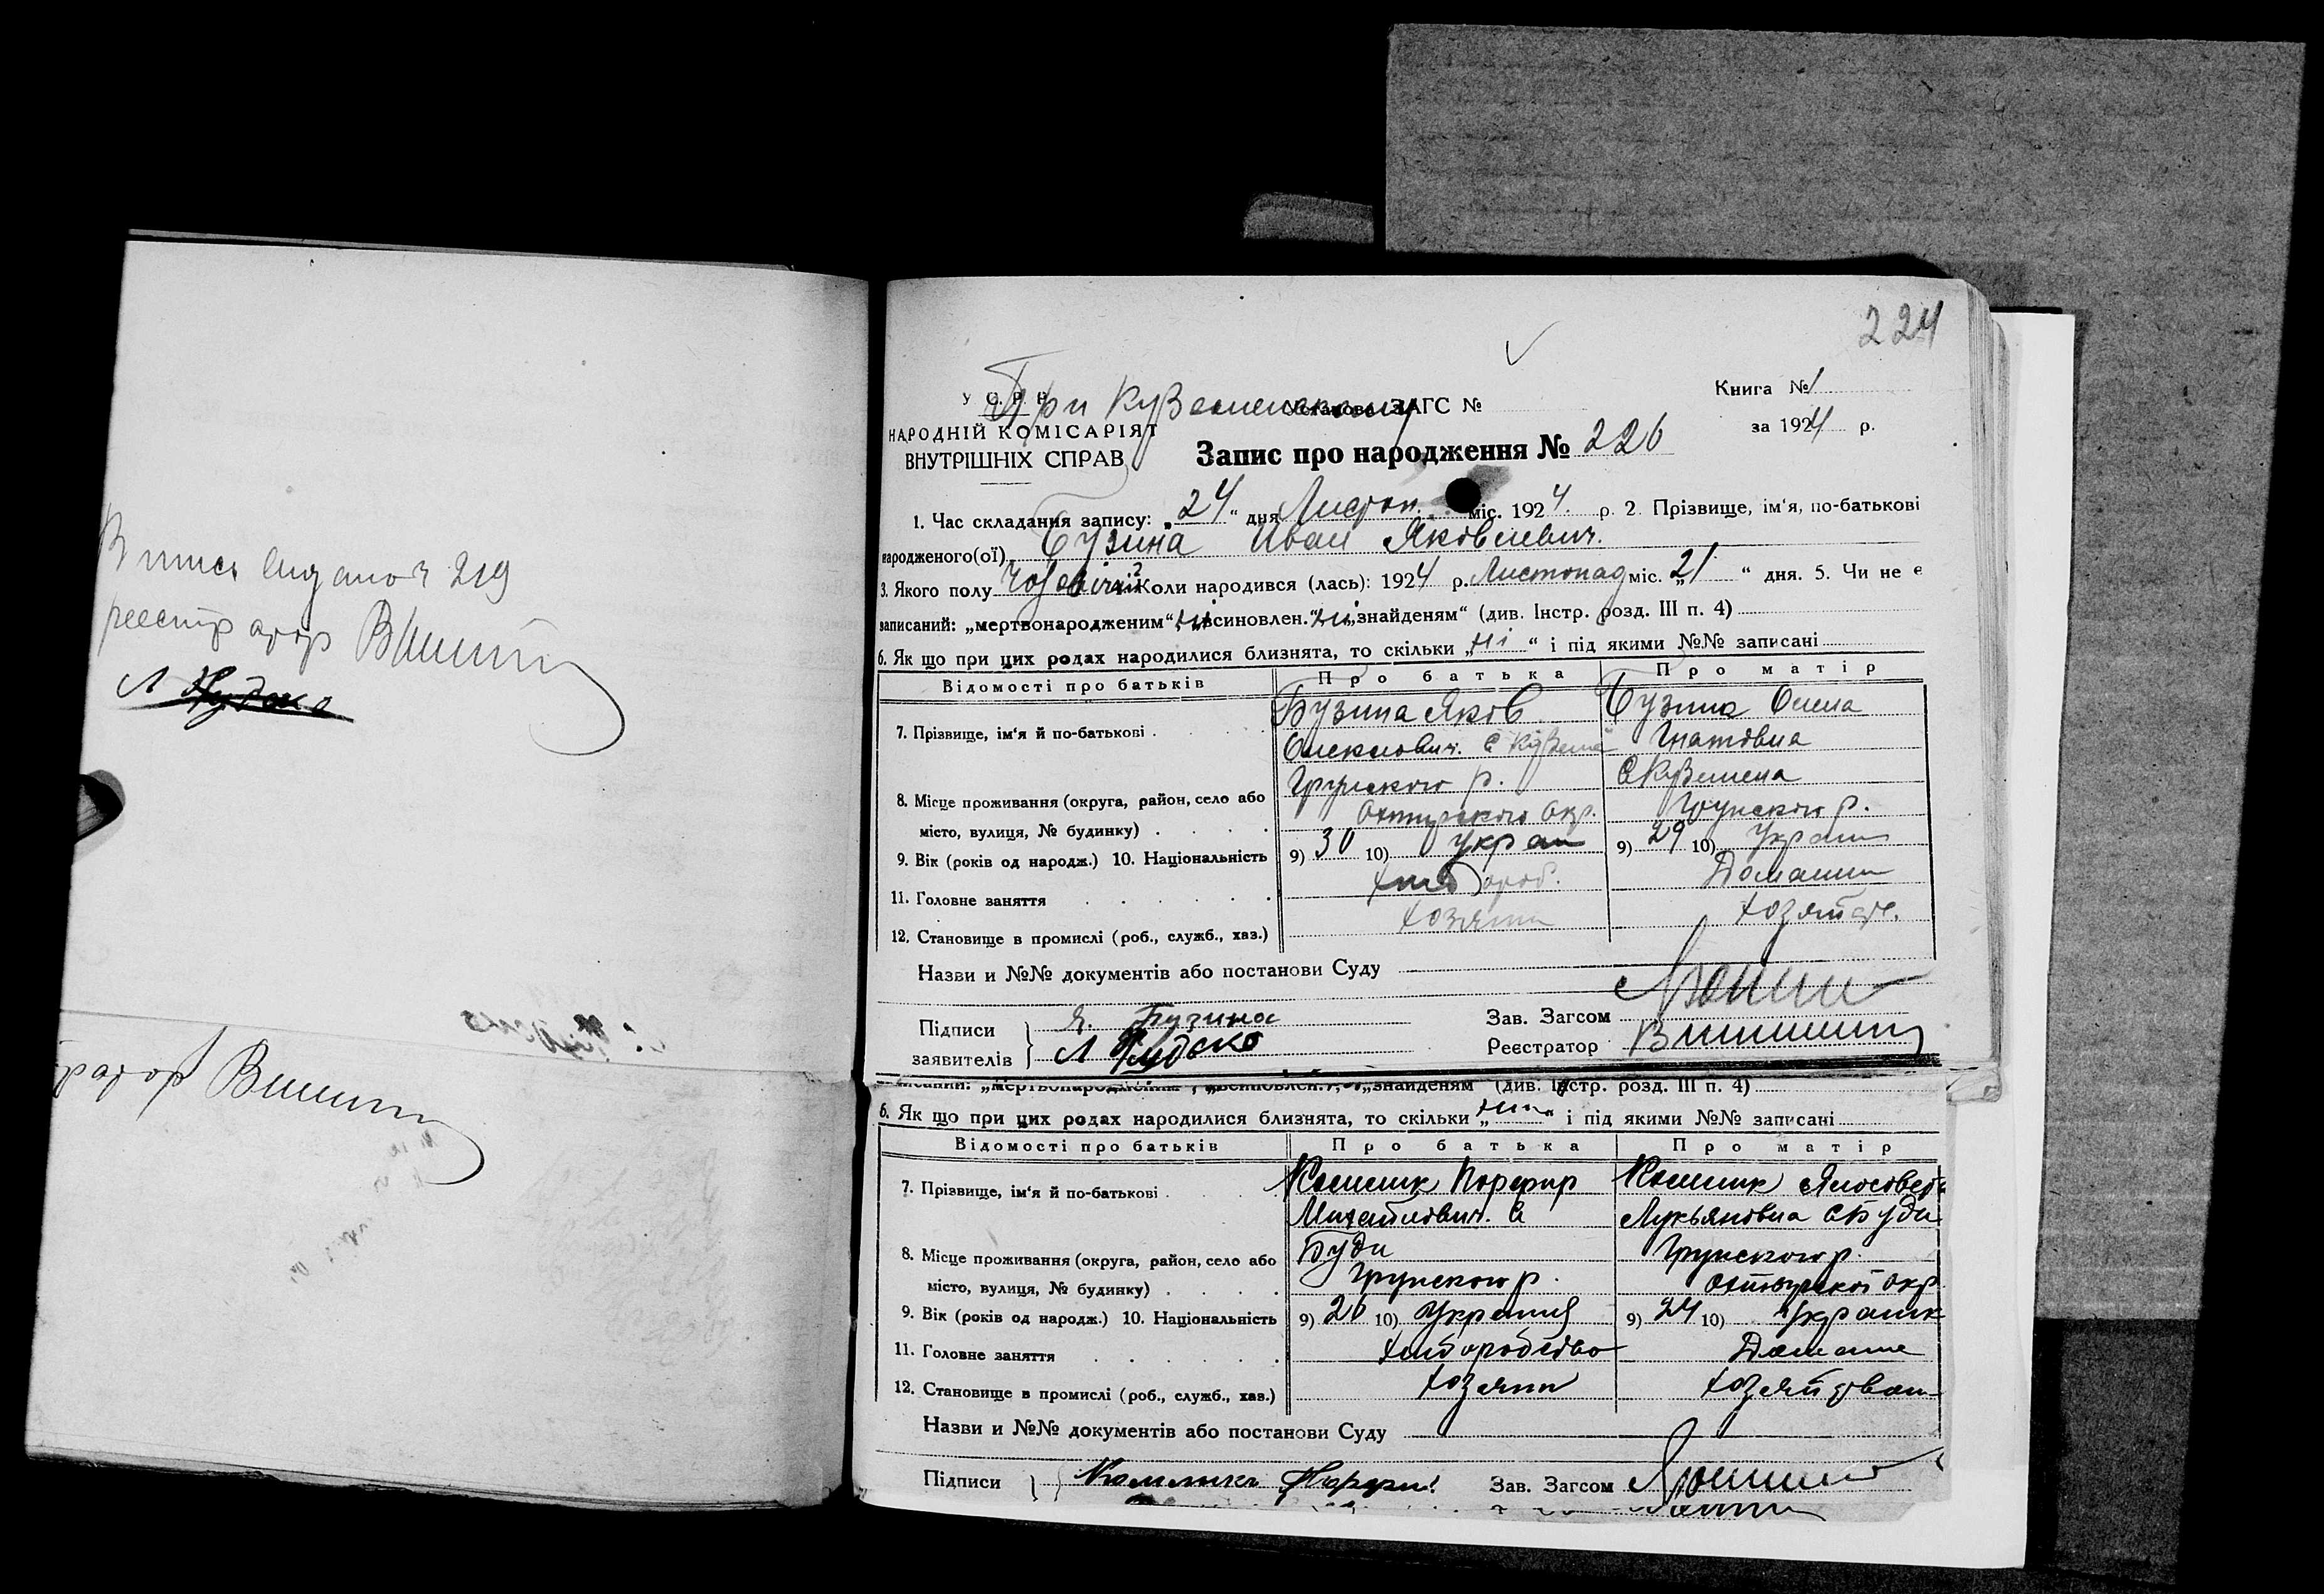 Випись видано ч 219
реєстратор
224
У. С. Р. Р.
При Куземенскому
Установа ЗАГС №
Книга № 1
НАРОДНІЙ КОМІСАРІЯТ
ВНУТРІШНІХ СПРАВ
за 1924 р.
Запис про народження № 226
1. Час складання запису: „24“ дня Листоп. міс. 1924 р. 2. Прізвище, ім‘я, по-батькові
народженого(ої) Бузина Иван Яковлевич.
3. Якого полу Чоловічий Коли народився (лась): 1924 р. Листопад міс. „21“ дня. 5. Чи не є
записаний: „мертвонародженим“ ні „всиновлен.“ ні „знайденям“ (див. Інстр. розд. III п. 4)
6. Як що при цих родах народилися близнята, то скільки „ні“ і під якими №№ записані
Відомості про батьків Про батька Про матір
7. Прізвище, ім‘я й по-батькові Бузина Яків Бузина Олена
Олексиович. с Куземе Гнатовна
8. Місце проживання (округа, район, село або Грунского р. с Куземена
місто, вулиця, № будинку) Охтирского Окр. Грунского р.
9. Вік (років од народж.) 10. Національність 9) 30 10) Украи 9) 29 10) Украин
11. Головне заняття Хлібороб. Домашн
12. Становище в промислі (роб., служб., хаз.) Хозяин Хозяйств.
Назви и №№ документів або постанови Суду
Підписи Я. Бузина Зав. Загсом
заявителів Реєстратор
записаний: „мертвонародженим“, „всиновлен.“, „знайденям“ (див. Інстр. розд. III п. 4)
6. Як що при цих родах народилися близнята, то скільки „ні“ і під якими №№ записані
Відомості про батьків Про батька Про матір
7. Прізвище, ім‘я й по-батькові Порфир
Михайлович. с Лукьяновна с Буди
8. Місце проживання (округа, район, село або Буди Грунского р.
місто, вулиця, № будинку) Грунского р. Охтырскої окр.
9. Вік (років од народж.) 10. Національність 9) 26 10) Украин 9) 24 10) Украинк
11. Головне заняття Хлiборобство Домашне
12. Становище в промислі (роб., служб., хаз.) Хозяин Хозяйстван
Назви и №№ документів або постанови Суду
Підписи Зав. Загсом